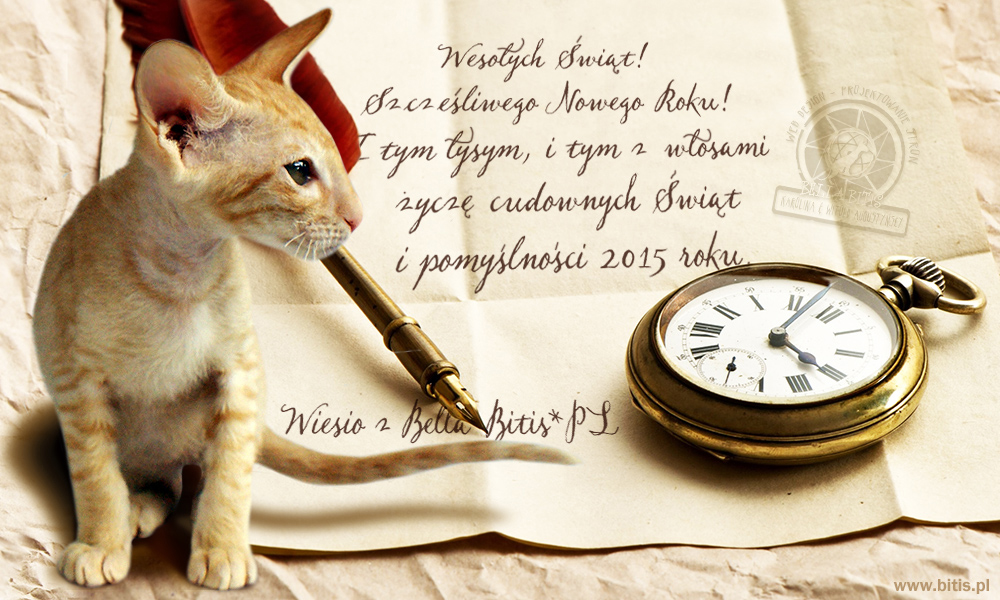 Wesołych Świąt!
Szczęśliwego Nowego Roku!
I tym łysym, i tym z włosami
życzę cudownych Świąt
i pomyślności 2015 roku.
Wiesio z Bella Bitis*PL
WEB DESIGN - PROJEKTOWANIE STRON
www.bitis.pl